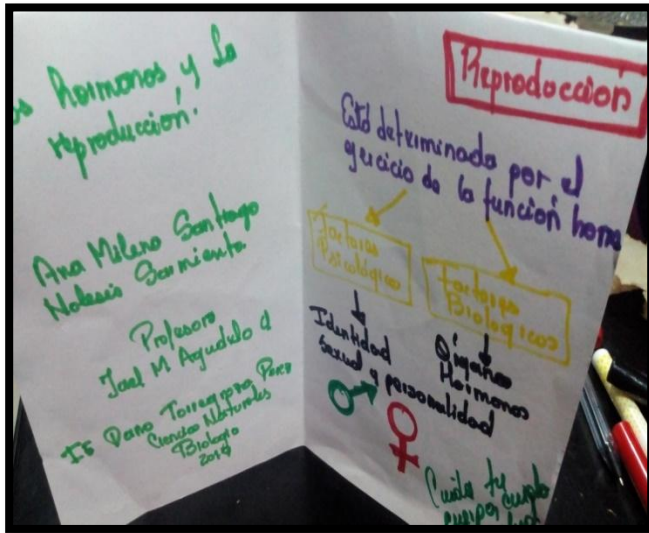 hormonas y la
reproducción.
Ana Milena Santiago
Nolasis Sarmiento
Profesora
Jael M Agudelo
Ciencias Naturales
Biología
Reproducción
Está determinada por el
ejercicio de la función
Factores
Psicológicos
Factores
Biologicos
Identidad
Sexual y personalidad
Órganos
Hormonas
Cuida tu
cuerpo